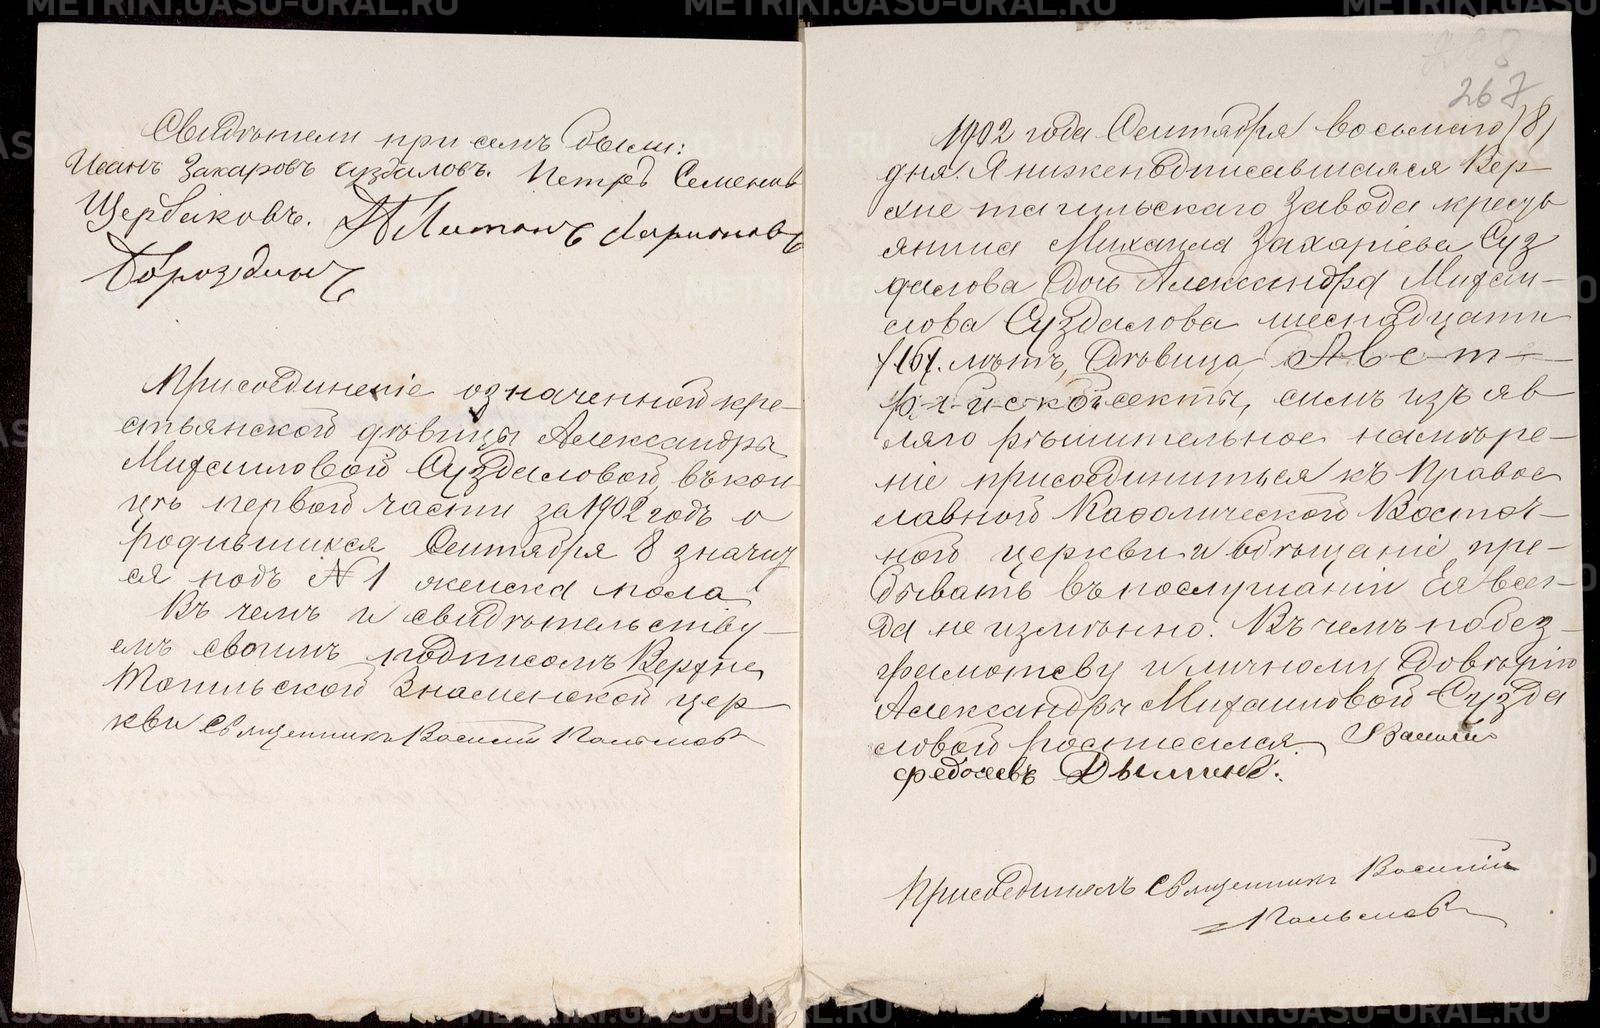 Свидѣтели при семъ были:
Иванъ Захаровъ Суздаловъ. Петръ Семеновъ
Щербаковъ. Антонъ Ларионовъ
Бороздинъ
Присоединеніе означенной кре-
стьянской дѣвицы Александры
Михаиловой Суздаловой въ кон
цѣ первой части за 1902 годъ о
родившихся Сентября 8 значит
ся подъ № 1 женска пола
Въ чемъ и свидѣтельству-
емъ своимъ подписомъ Верхне
Тагильской Знаменской цер
кви Священникъ Василій
267
1902 года Сентября восьмаго /8/
дня. Я нижеподписавшаяся Вер-
хне тагильскаго Завода кресть
янина Михаила Захаріева Суз
далова дочь Александра Михаи-
лова Суздалова шеснадцати
/16/. лѣтъ, дѣвица, Австр-
рійской секты, симъ изъяв
ляю рѣшительное намѣре-
ніе присоединиться къ Правос
лавной Каѳолической Восточ-
ной церкви и обѣщаніе пре-
бывать въ послушаніи Ея всег-
да не измѣнно. Въ чемъ по без-
грамотсву и личному довѣрію
Александры Михаиловой Сузда
ловой росписался Василій
Федосеевъ Дылдинъ.
Присоединялъ Священникъ Василій
METRIKI.GASU-URAL.RU